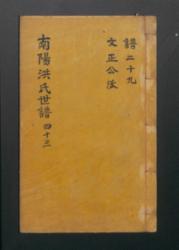 譜 二十九
文正公派
南陽洪氏世譜 四十三